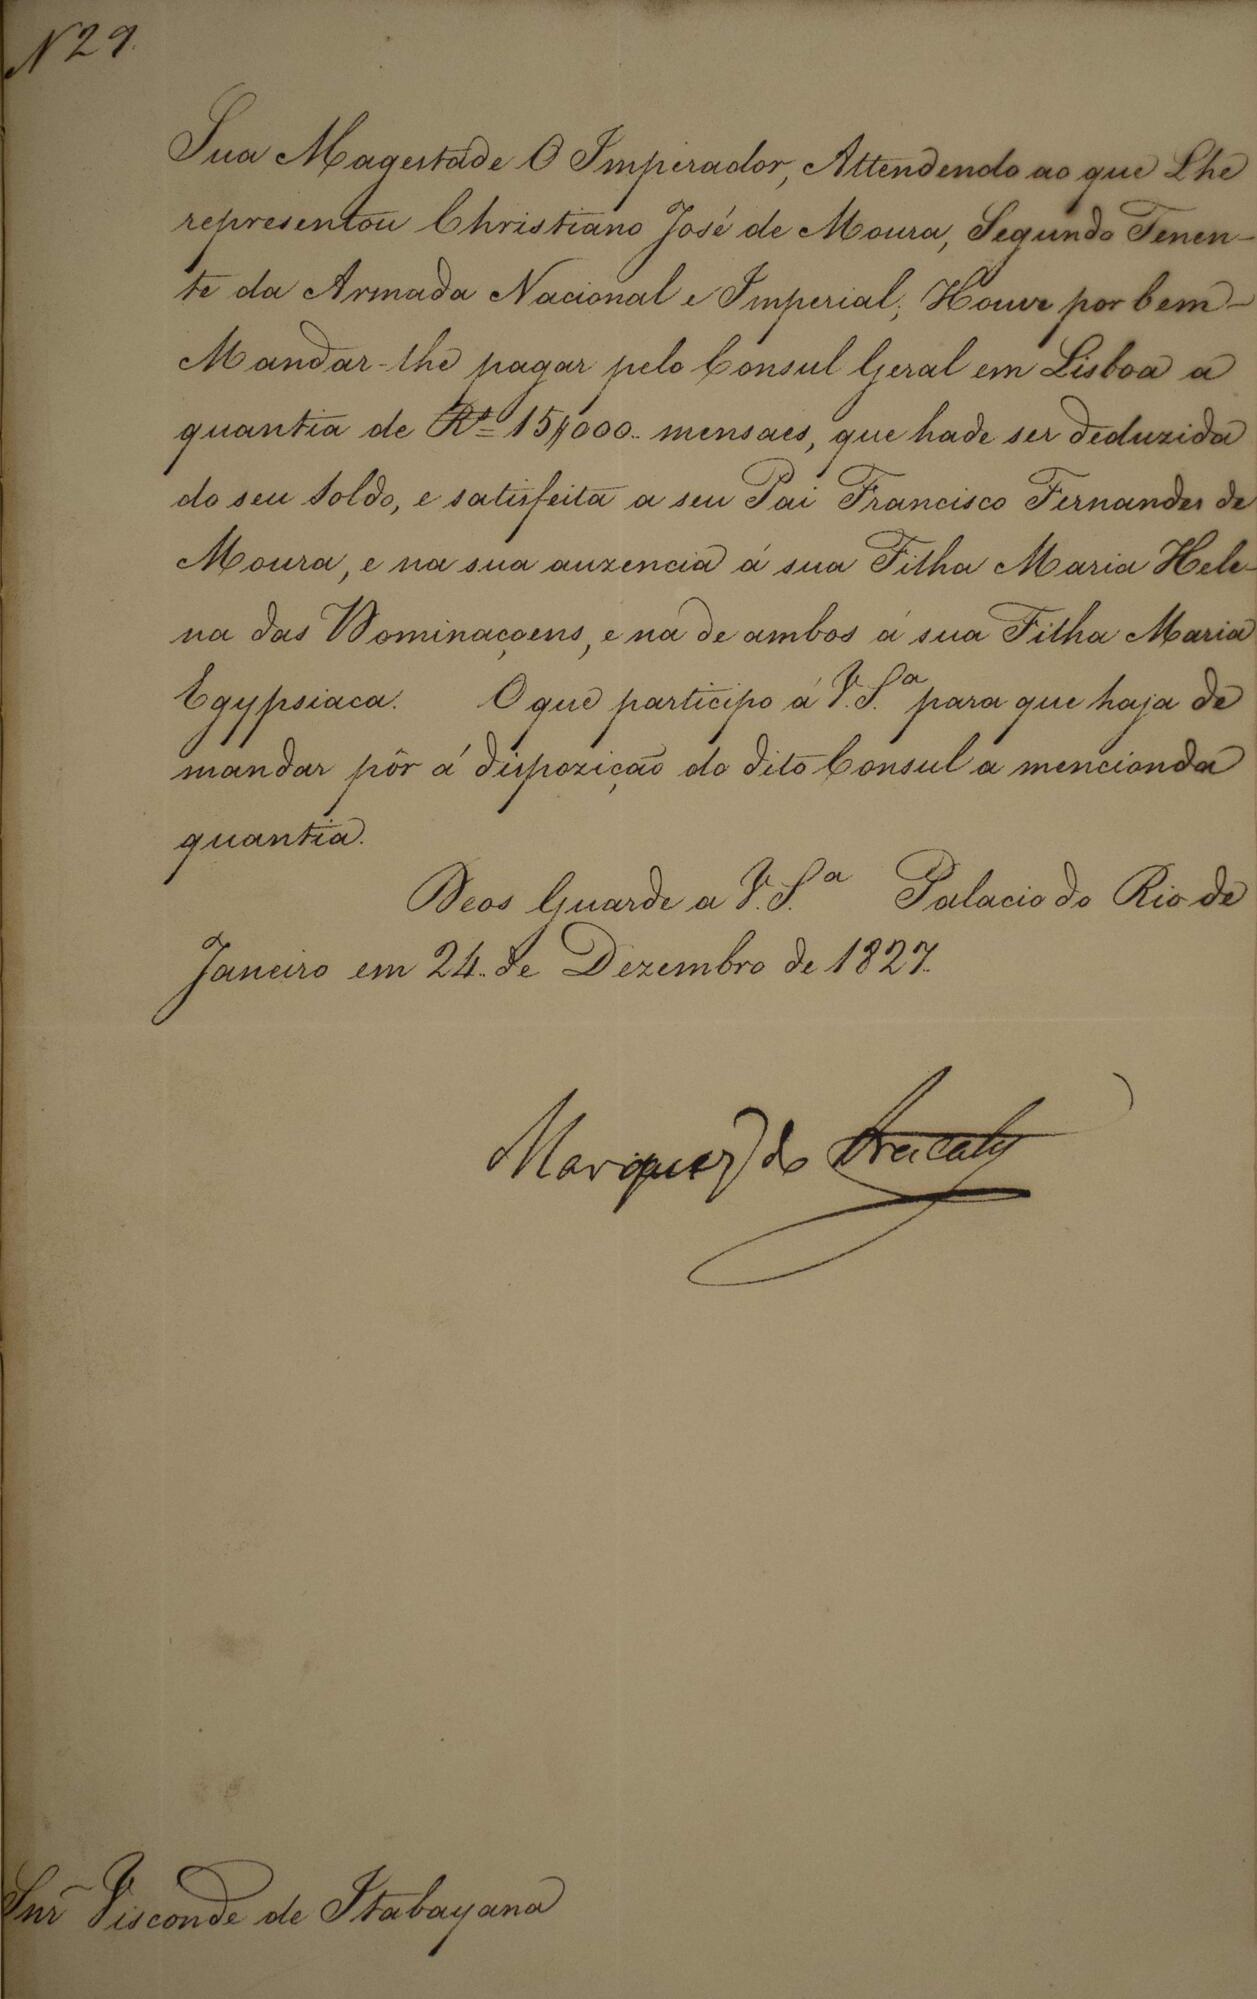 N 29.
Sua Magestade O Imperador, Attendendo ao que Lhe
representou Christiano José de Moura, Segundo Tenen-
te da Armada Nacional e Imperial; Houve por bem
Mandar-lhe pagar pelo Consul Geral em Lisboa a
quantia de R.s 15$000.. mensaes, que hade ser deduzida
do seu soldo, e satisfeita a seu Pai Francisco Fernandes de
Moura, e na sua auzencia á sua Filha Maria Hele-
na das Dominaçoens, e na de ambos á sua Filha Maria
Egypsiaca. O que participo á V. S.a para que haja de
mandar pôr á dispozição do dito Consul a mencionda
quantia.
Deos Guarde a V. S.a Palacio do Rio de
Janeiro em 24.. de Dezembro de 1827.
Marquez do Aracaty
Snr Visconde de Itabayana